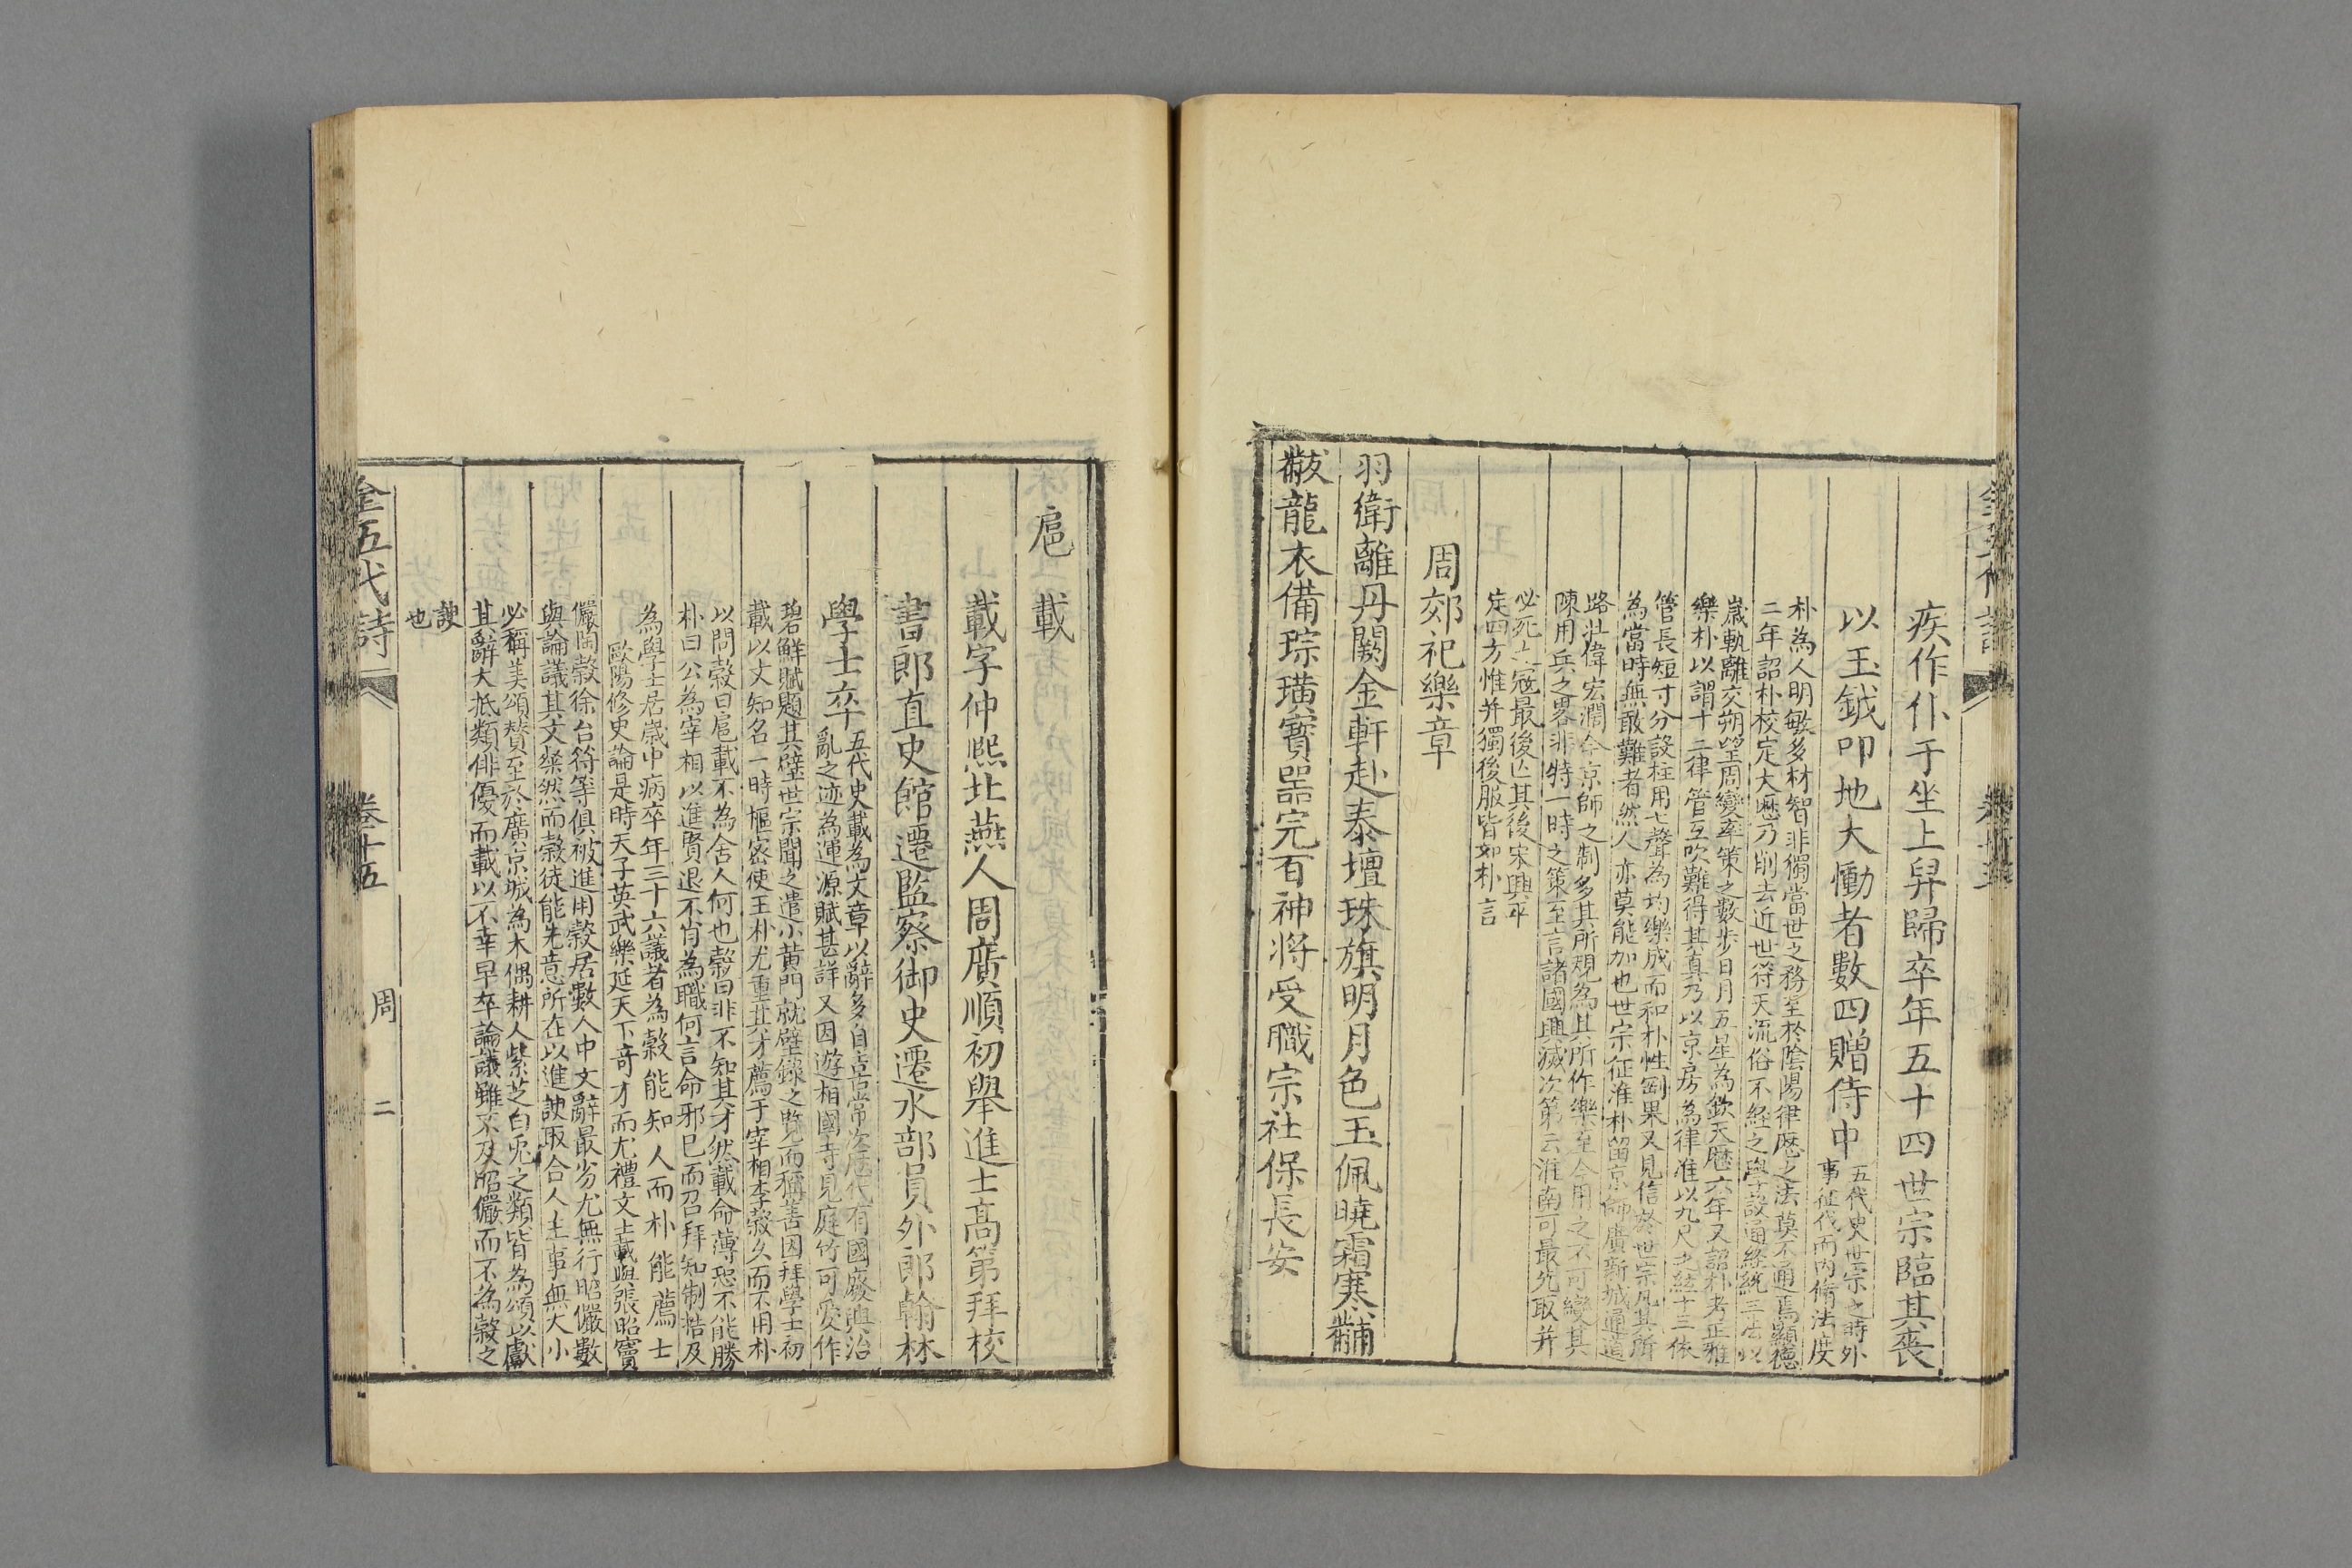 疾作仆于坐上舁歸卒年五十四世宗臨其喪
以玉鉞叩地大慟者數四贈侍中
五代史世宗之時外
事征伐而內脩法度
朴為人明敏多材智非獨當世之務至於陰陽律歷之法莫不通焉顯德
二年詔朴校定大曆乃削去近世符天流俗不經之學設通經統三法以
歲軌離交朔望周變率策之數步日月五星為欽天曆六年又詔朴考正雅
樂朴以謂十二律管互吹難得其真乃以京房為律准以九尺之絃十三依
管長短寸分設柱用七聲為均樂成而和朴性剛果又見信於世宗凡其所
為當時無敢難者然人亦莫能加也世宗征淮朴留京師廣新城通道
路壯偉宏濶今京師之制多其所規為其所作樂至今用之不可變其
陳用兵之畧非特一時之策至言諸國興滅次第云淮南可最先取并
必死之寇最後亡其後宋興平
定四方惟并獨後服皆如朴言
周郊祀樂章
羽衛離丹闕金軒赴泰壇珠旗明月色玉佩曉霜寒黼
黻龍衣備琮璜寶器完百神將受職宗社保長安
扈載
載字仲熙北燕人周廣順初舉進士高第拜校
書郎直史館遷監察御史遷水部員外郎翰林
學士卒
五代史載為文章以辭多自喜常次歷代有國廢興治
亂之迹為運源賦甚詳又因遊相國寺見庭竹可愛作
碧鮮賦題其壁世宗聞之遣小黃門就壁錄之覽而稱善因拜學士初
載以文知名一時樞密使王朴尤重其才薦于宰相李穀久而不用朴
以問穀曰扈載不為舍人何也穀曰非不知其才然載命薄恐不能勝
朴曰公為宰相以進賢退不肖為職何言命邪已而召拜知制誥及
為學士居歲中病卒年三十六議者為穀能知人而朴能薦士
歐陽修史論是時天子英武樂延天下奇才而尤禮文士載與張昭竇
儼陶穀徐台符等俱被進用穀居數人中文辭最劣尤無行昭儼數
與論議其文粲然而穀徒能先意所在以進諛取合人主事無大小
必稱美頌贊至於廣京城為木偶耕人紫芝白兎之類皆為頌以獻
其辭大抵類俳優而載以不幸早卒論議雖不及昭儼而不為穀之
諛
也
全五代詩 卷十五 周 二